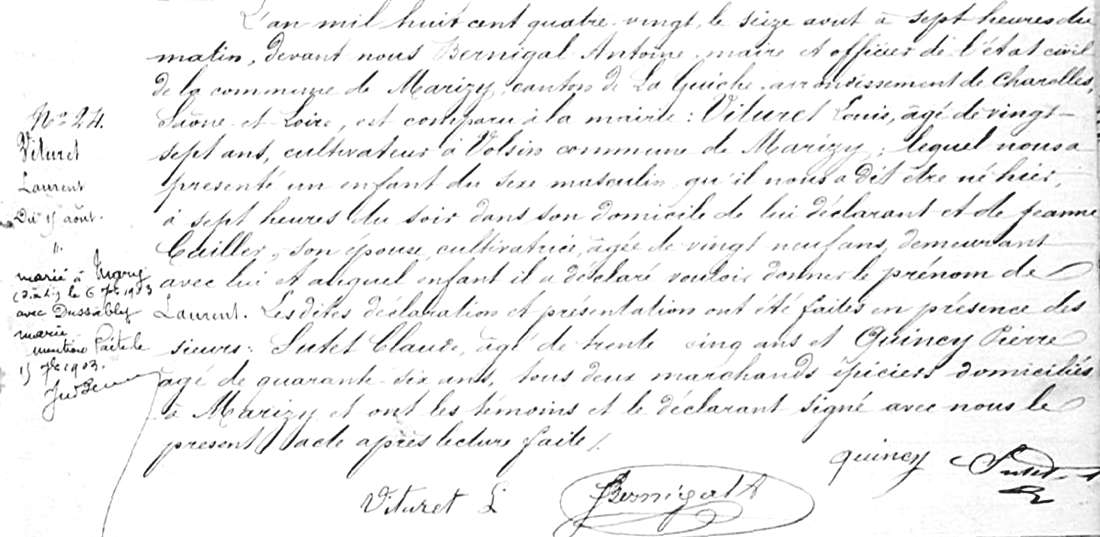 N° 24.
Vituret
Laurent
Du 15 août.
"
marié à
(S. et L.) le 6 1903
avec
marie
mention faite le
15 1903.
L'an mil huit cent quatre-vingt, le seize aout à sept heures du
matin, devant nous Bernigal Antoine, maire et officier de l'état civil
de la commune de Marizy, canton de La Guiche arrondissement de Charolles,
Saône-et-Loire, est comparu à la mairie: Vituret Louis, âgé de vingt-
sept ans, cultivateur à Volsin commune de Marizy; lequel nous a
presenté un enfant du sexe masculin qu'il nous a dit être né hier,
à sept heures du soir dans son domicile de lui déclarant et de Jeanne
Cuiller, son épouse, cultivatrice, âgée de vingt neuf ans, demeurant
avec lui et auquel enfant il a déclaré vouloir donner le prénom de
Laurent. Les dites déclaration et présentation ont été faites en présence des
sieurs: Sutet Claude, âgé de trente cinq ans et Quincy Pierre
âgé de quarante-six ans, tous deux marchands épiciers domiciliés
à Marizy et ont les témoins et le déclarant signé avec nous le
present acte après lecture faite /.
quincy Sutet
Vituret L Bernigal A